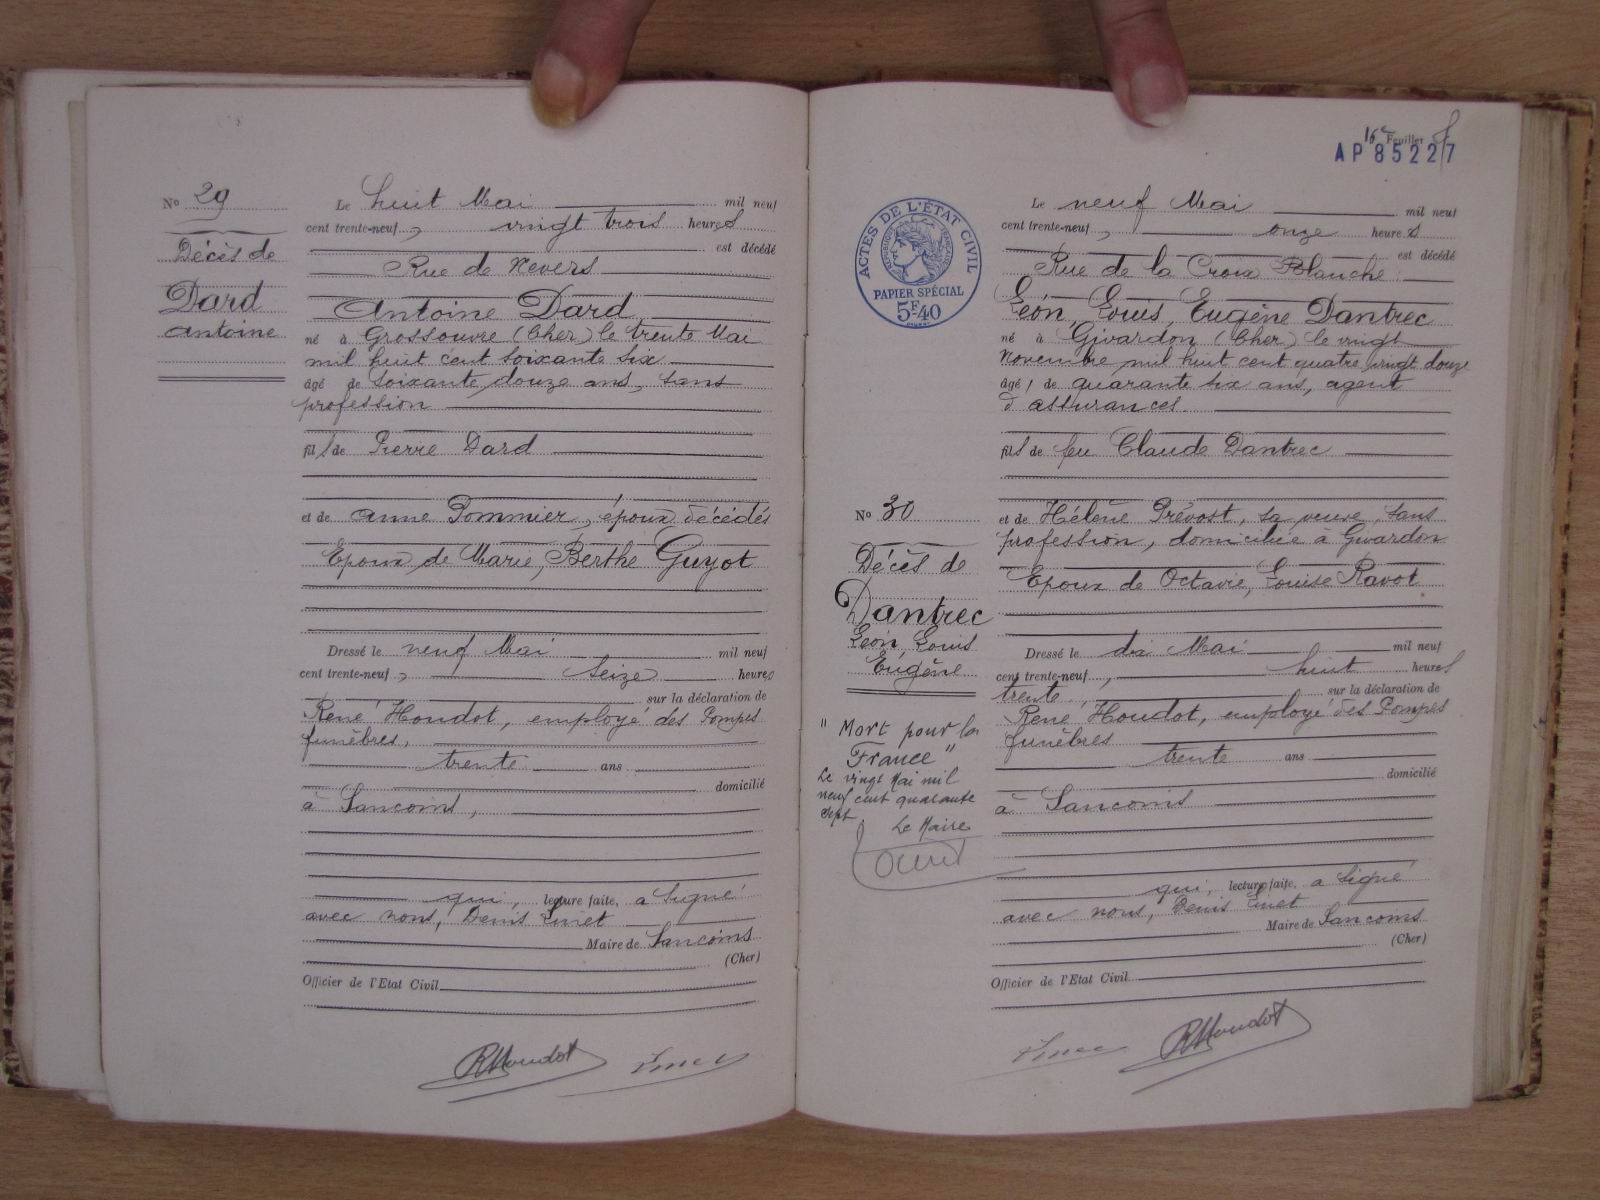 No 29
Décès de
Dard
Antoine
Le huit Mai mil neuf
cent trente-neuf, vingt trois heures
est décédé
Rue de Nevers
Antoine Dard
né à Grossouvre (Cher) le trente Mai
mil huit cent soixante six
âgé de soixante douze ans, sans
profession
fils de Pierre Dard
et de Anne Pommier, époux décédés
Epoux de Marie, Berthe Guyot
Dressé le neuf Mai mil neuf
cent trente-neuf, seize heures
sur la déclaration de
René Houdot, employé des Pompes
funèbres,
trente ans
domicilié
à Sancoins,
qui, lecture faite, a signé
avec nous, Denis
Maire de Sancoins
(Cher)
Officier de l'Etat Civil
RHoudot
16e Feuillet
AP 85227
ACTES DE L'ÉTAT CIVIL
RÉPUBLIQUE FRANÇAISE
PAPIER SPÉCIAL
5F40
No 30
Décès de
Dantrec
Léon, Louis
Eugène
"Mort pour la
France"
Le vingt Mai mil
neuf cent quarante
sept.
Le Maire
Le neuf Mai mil neuf
cent trente-neuf, onze heures
est décédé
Rue de la Croix Blanche
Léon, Louis, Eugène Dantrec
né à Givardon (Cher) le vingt
Novembre mil huit cent quatre vingt douze
âgé de quarante six ans, agent
d'assurances.
fils de feu Claude Dantrec
et de Hélène Prévost, sa veuve, sans
profession, domiciliée à Givardon
Epoux de Octavie, Louise Ravot
Dressé le dix Mai mil neuf
cent trente-neuf, huit heures
trente, sur la déclaration de
René Houdot, employé des Pompes
funèbres
trente ans
domicilié
à Sancoins
qui, lecture faite, a signé
avec nous, Denis
Maire de Sancoins
(Cher)
Officier de l'Etat Civil
RHoudot